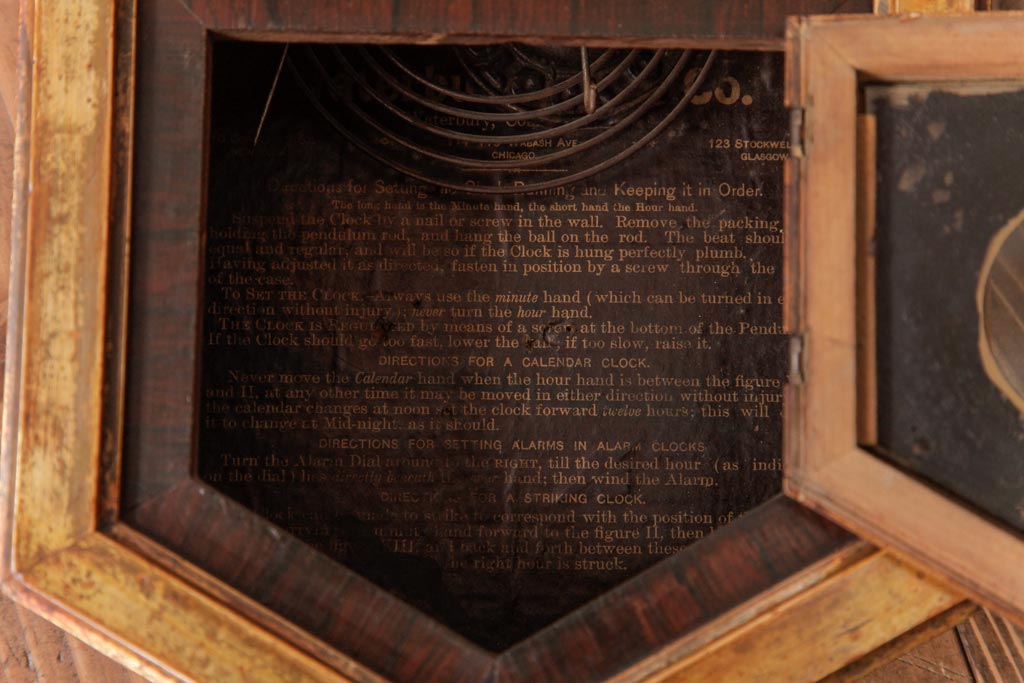 Co.
Waterbury, Co
WABASH AVE. 123 STOCKWEL
CHICAGO. GLASGOW
Directions for Setting Running and Keeping it in Order.
The long hand is the Minute hand, the short hand the Hour hand.
Suspend the Clock by a nail or screw in the wall. Remove the packing,
holding the pendulum rod, and hang the ball on the rod. The beat shoul
equal and regular, and will be so if the Clock is hung perfectly plumb.
Having adjusted it as directed, fasten in position by a screw through the
of the case.
TO SET THE CLOCK.—Always use the minute hand (which can be turned in e
direction without injury); never turn the hour hand.
THE CLOCK IS REGULATED by means of a screw at the bottom of the Pendu
If the Clock should go too fast, lower the ball; if too slow, raise it.
DIRECTIONS FOR A CALENDAR CLOCK.
Never move the Calendar hand when the hour hand is between the figure
and II, at any other time it may be moved in either direction without injur
the calendar changes at noon set the clock forward twelve hours; this will
it to change at Mid-night, as it should.
DIRECTIONS FOR SETTING ALARMS IN ALARM CLOCKS
Turn the Alarm Dial around to the RIGHT, till the desired hour (as indi
on the dial) lies directly beneath the hour hand; then wind the Alarm.
DIRECTIONS FOR A STRIKING CLOCK.
to strike to correspond with the position of
hand forward to the figure II, then
VIII, and back and forth between these
the right hour is struck.